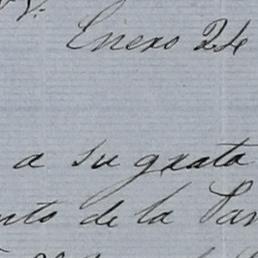 Enero 24
a su grata
nto de la Par